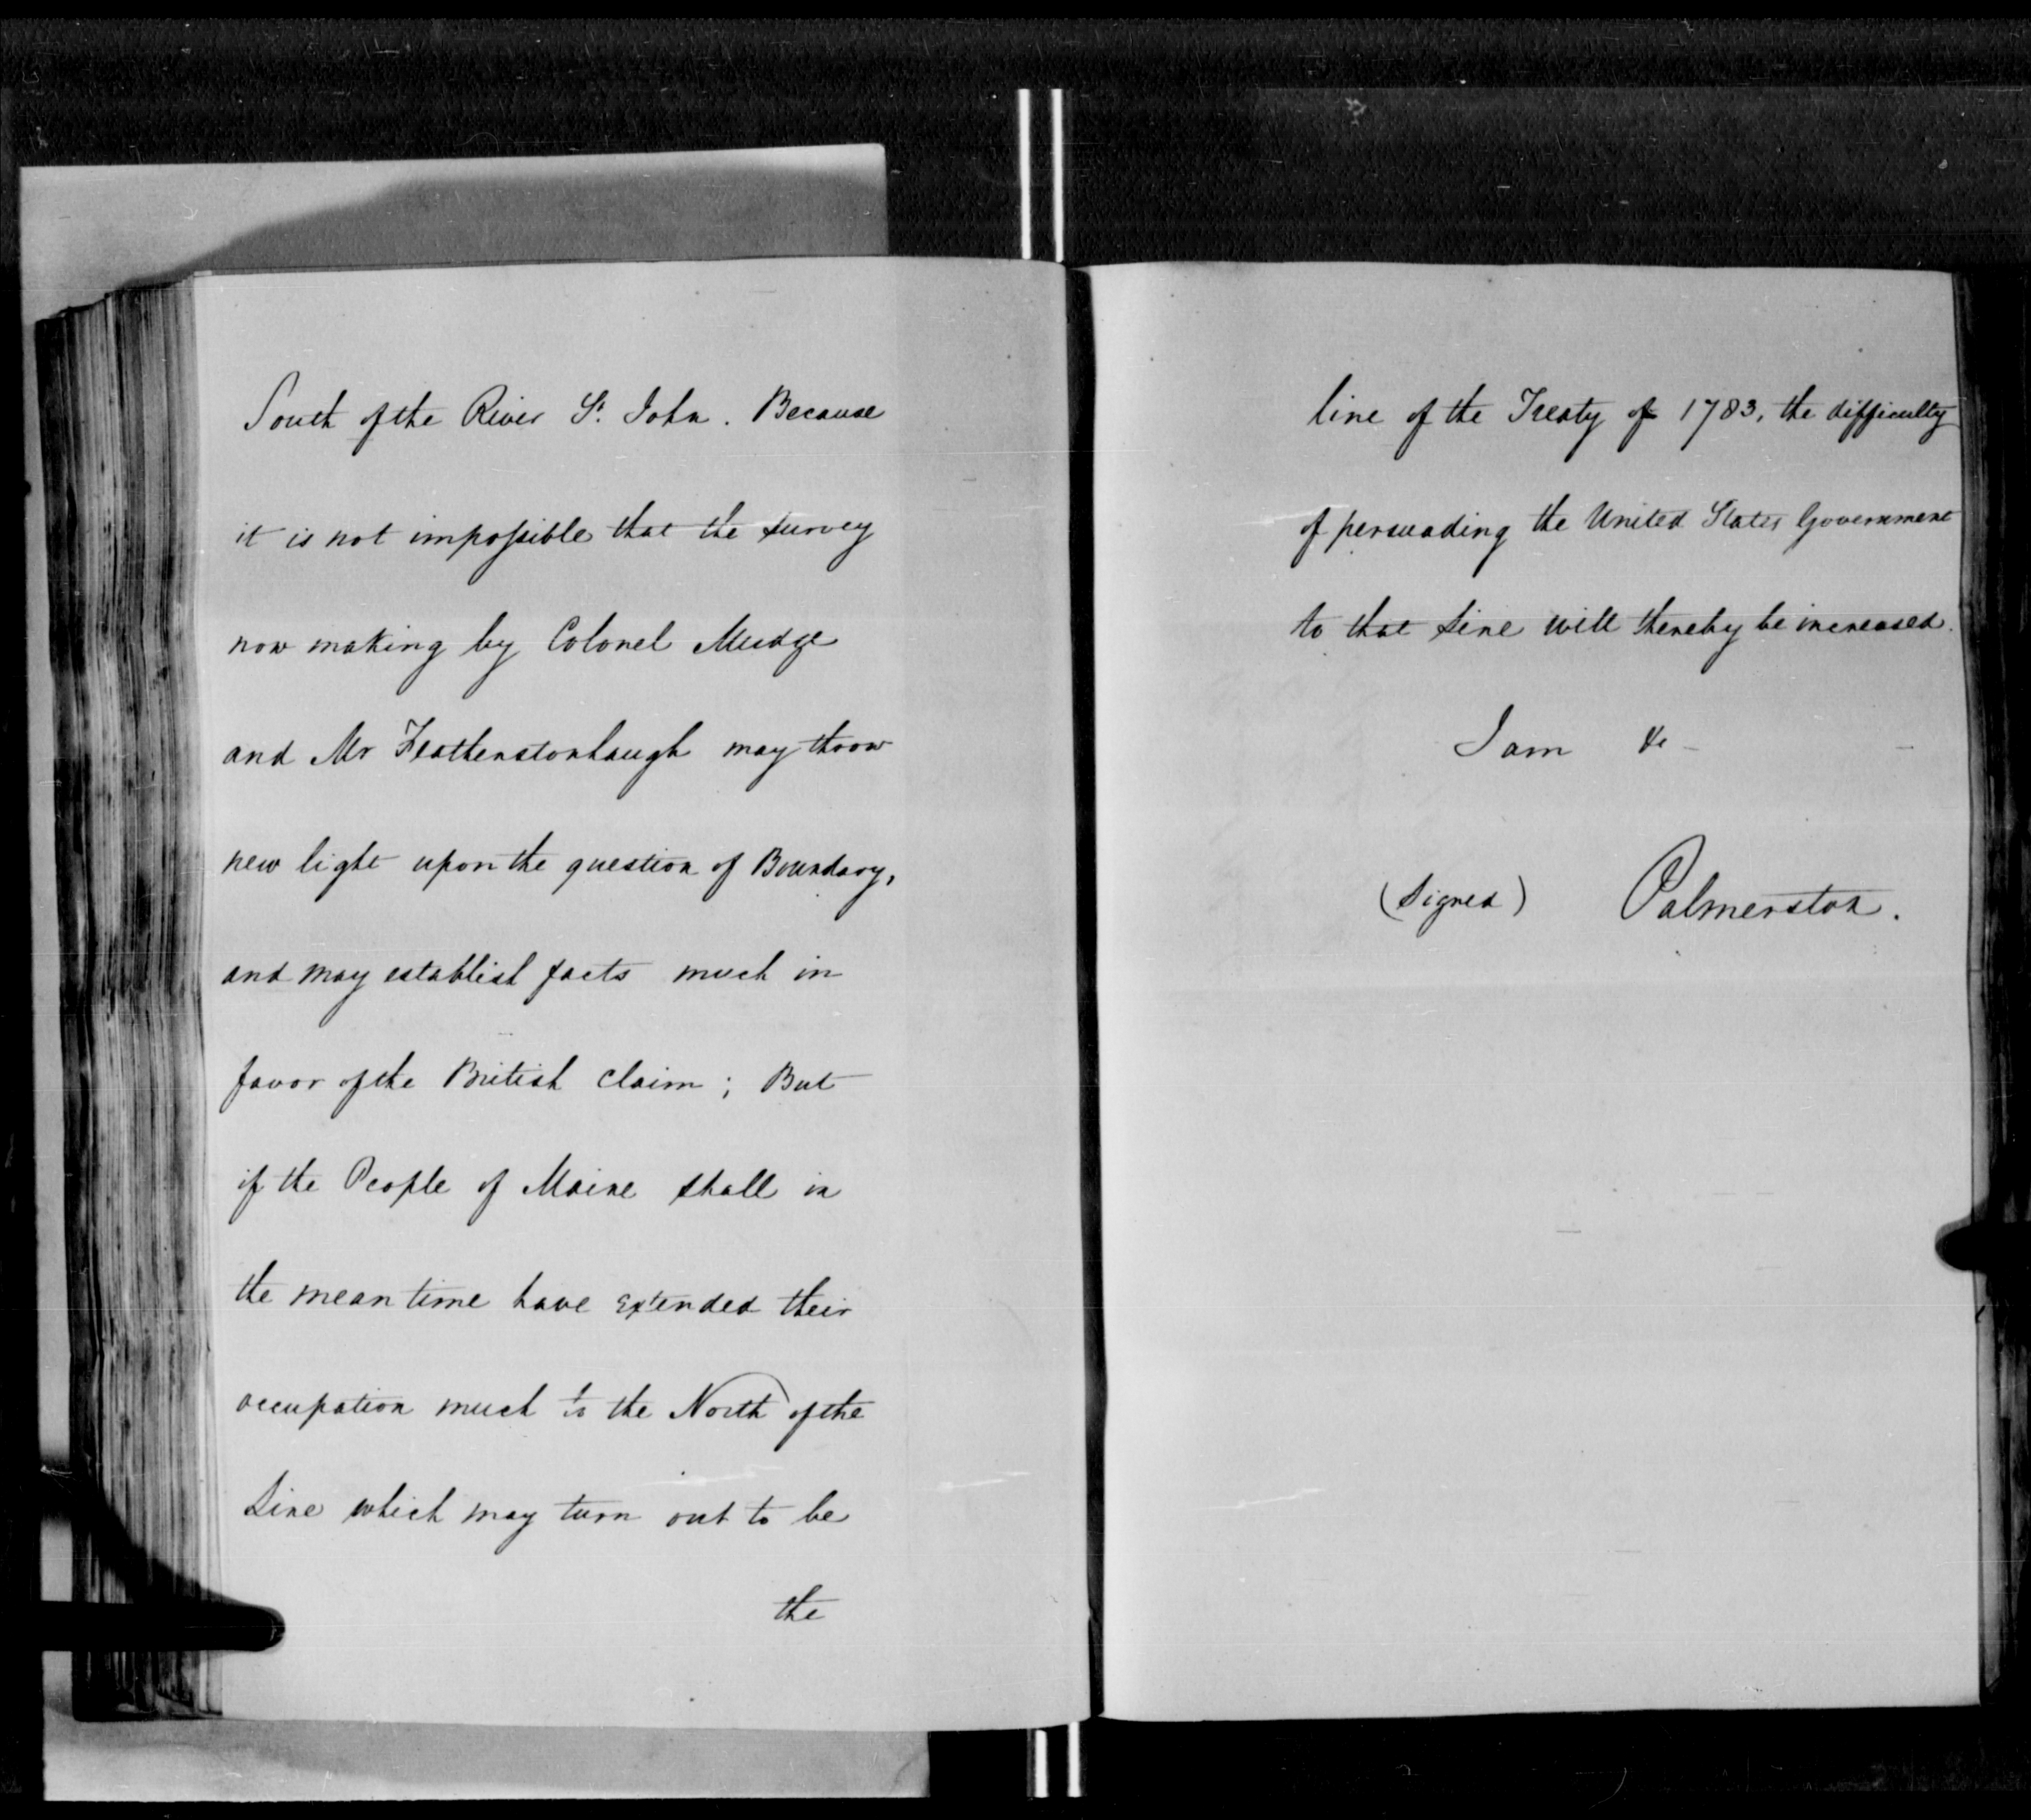 South of the River St. John. Because
it is not impossible that the survey
now making by Colonel Mudge
and Mr Featherstonhaugh may throw
new light upon the question of Boundary,
and may establish facts much in
favor of the British claim; But
if the People of Maine shall in
the mean time have extended their
occupation much to the North of the
Line which may turn out to be
the
line of the Treaty of 1783, the difficulty
of persuading the United States Government
to that Line will thereby be increased.
I am &c
(Signed) Palmerston.